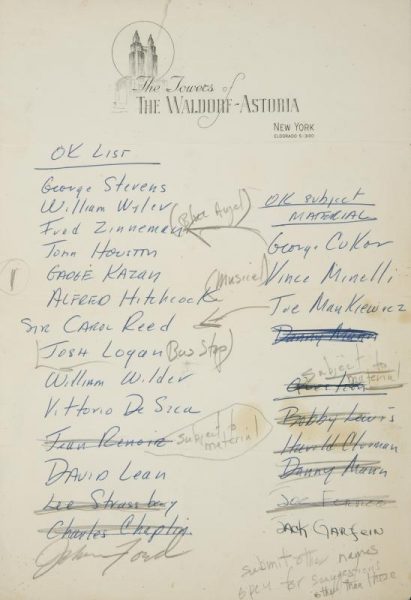 The Towers of
THE WALDORF-ASTORIA
NEW YORK
ELDORADO 5-3100
OK LIST
George Stevens
William Wyler
Fred Zinnemann
John Houston
GADGE KAZAN
ALFRED Hitchcock
SIR CAROL Reed
JOSH LOGAN (Bus Stop)
William Wilder
Vittorio De Sica
Jean Renoir subject to material
DAVID Lean
Lee Strassberg
Charles Chaplin
John Ford
(Blue Angel)
(Musical)
OK subject
MATERIAL
George Cukor
Vince Minelli
Joe Mankiewicz
Danny Mann
subject to material
Bobby Lewis
Harold Clurman
Danny Mann
JACK GARFEIN
submit other names
for suggestions
other than those